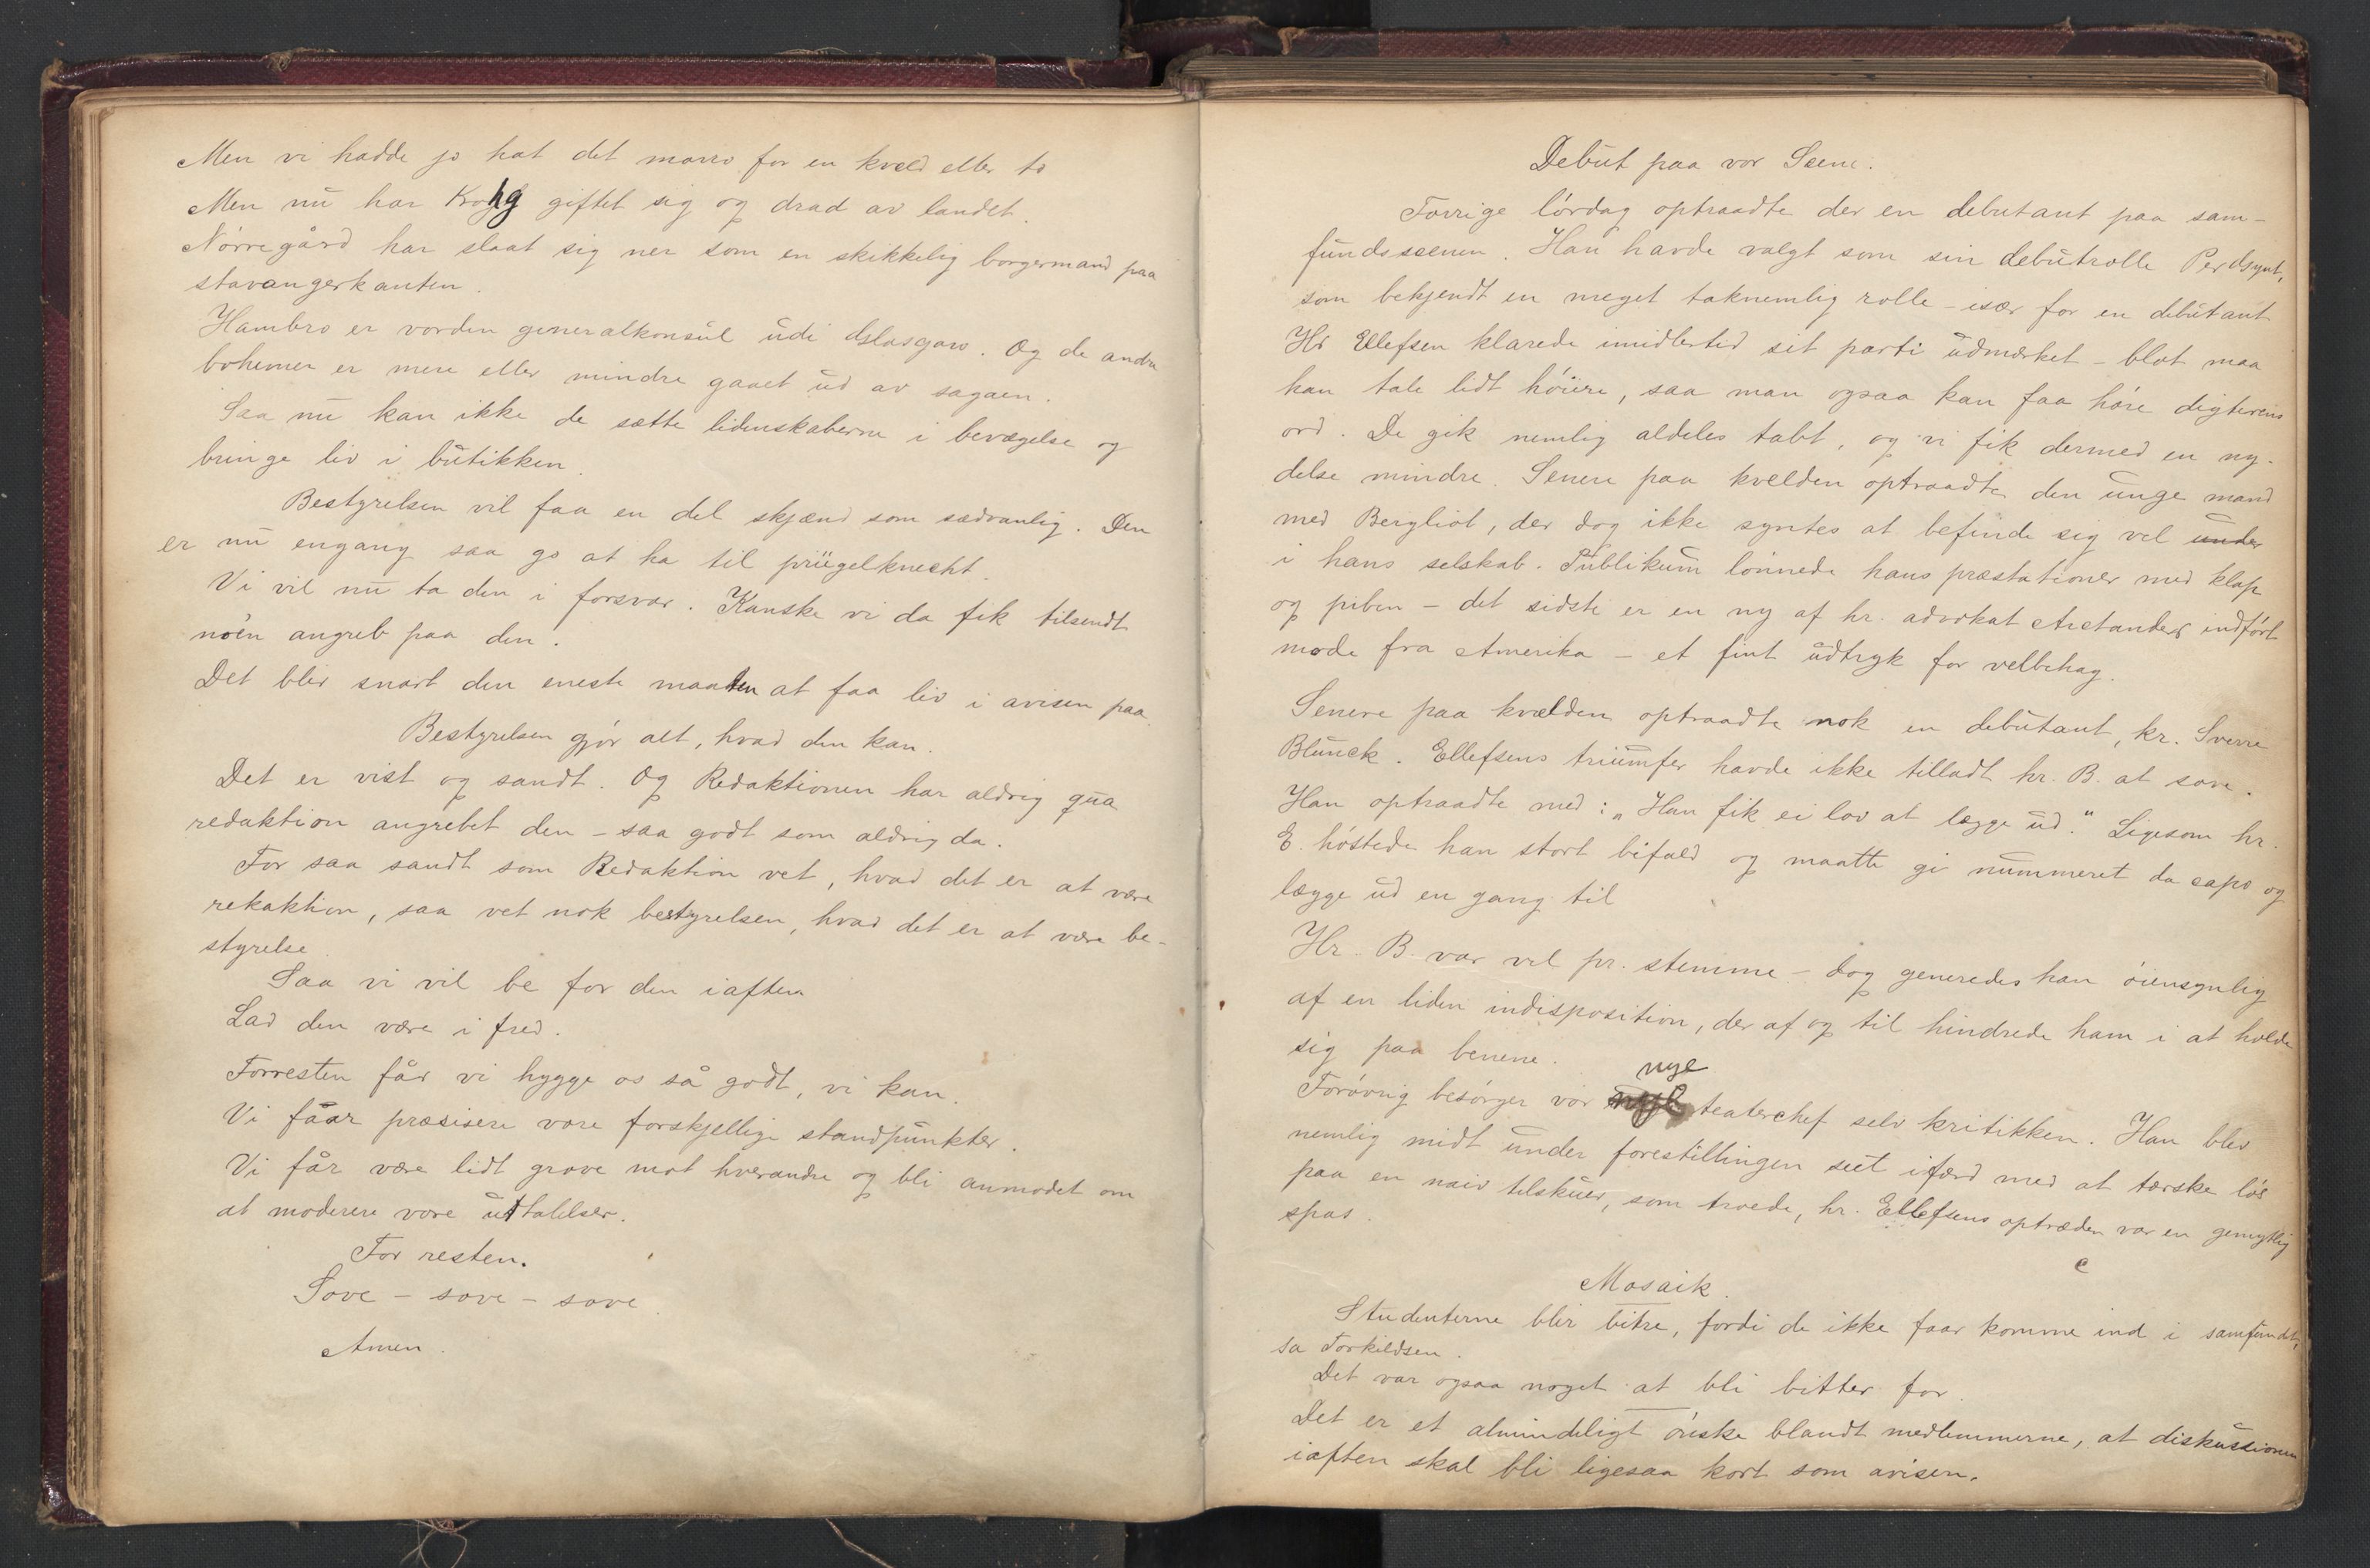 Men vi hadde jo hat det morro for en kveld eller to
Men nu har Krohg giftet sig og drad av landet.
Nørregård har slaat sig ner som en skikkelig borgermand paa
stavangerkanten.
Hambro er vorden generalkonsul udi Glasgaw. Og de andre
bohemer er mere eller mindre gaaet ud av sagaen.
Saa nu kan ikke de sætte lidenskaberne i bevægelse og
bringe liv i butikken.
Bestyrelsen vil faa en del skjænd som sædvanlig. Den
er nu engang saa go at ha til prügelknecht.
Vi vil nu ta den i forsvar. Kanske vi da fik tilsendt
noen angreb paa den.
Det blir snart den eneste maaten at faa liv i avisen paa.
Bestyrelsen gjør alt, hvad den kan.
Det er vist og sandt. Og Redaktionen har aldrig qua
redaktion angrebet den – saa godt som aldrig da.
For saa sandt som Redaktion vet, hvad det er at være
rekaktion, saa vet nok bestyrelsen, hvad det er at være be-
styrelse
Saa vi vil be for den iaften
Lad den være i fred.
Forresten får vi hygge os så godt, vi kan.
Vi fåar præsisere vore forskjellige standpunkter.
Vi får være lidt grove mot hverandre og bli anmodet om
at moderere vore uttalelser.
For resten.
Sove – sove – sove.
Amen.
Debut paa vor Scene.
Forrige lørdag optraadte der en debutant paa sam-
fundsscenen. Han havde valgt som sin debutrolle Per Gynt,
som bekjendt en meget taknemlig rolle – især for en debutant
Hr Ellefsen klarede imidlertid sit parti udmærket – blot maa
han tale lidt høiere, saa man ogsaa kan faa høre digterens
ord. De gik nemlig aldeles tabt, og vi fik dermed en ny-
delse mindre. Senere paa kvelden optraadte den unge mand
med Bergliot, der dog ikke syntes at befinde sig vel under
i hans selskab. Publikum lønnede hans præstationer med klap
og piben – det sidste er en ny af hr. advokat Arctander indført
mode fra Amerika – et fint udtryk for velbehag.
Senere paa kvælden optraadte nok en debutant, hr. Sverre
Blunck. Ellefsens triumfer havde ikke tilladt hr. B. at sove.
Han optraadte med: „Han fik ei lov at lægge ud.“ Ligesom hr.
E. høstede han stort bifald og maatte gi nummeret da capo og
lægge ud en gang til
Hr. B. var vel pr. stemme – dog generedes han øiensynlig
af en liden indisposition, der af og til hindrede ham i at holde
sig paa benene.
nye
Forøvrig besørger vor teaterchef selv kritikken. Han blev
nemlig midt under forestillingen seet ifærd med at tærske løs
paa en naiv tilskuer, som troede, hr. Ellefsens optræden var en gemytlig
spas.
Mosaik.
Studenterne blir bitre, fordi de ikke faar komme ind i samfundet,
sa Torkildsen.
Det var ogsaa noget at bli bitter for.
Det er et almindeligt ønske blandt medlemmerne, at diskussionen
iaften skal bli ligesaa kort som avisen.